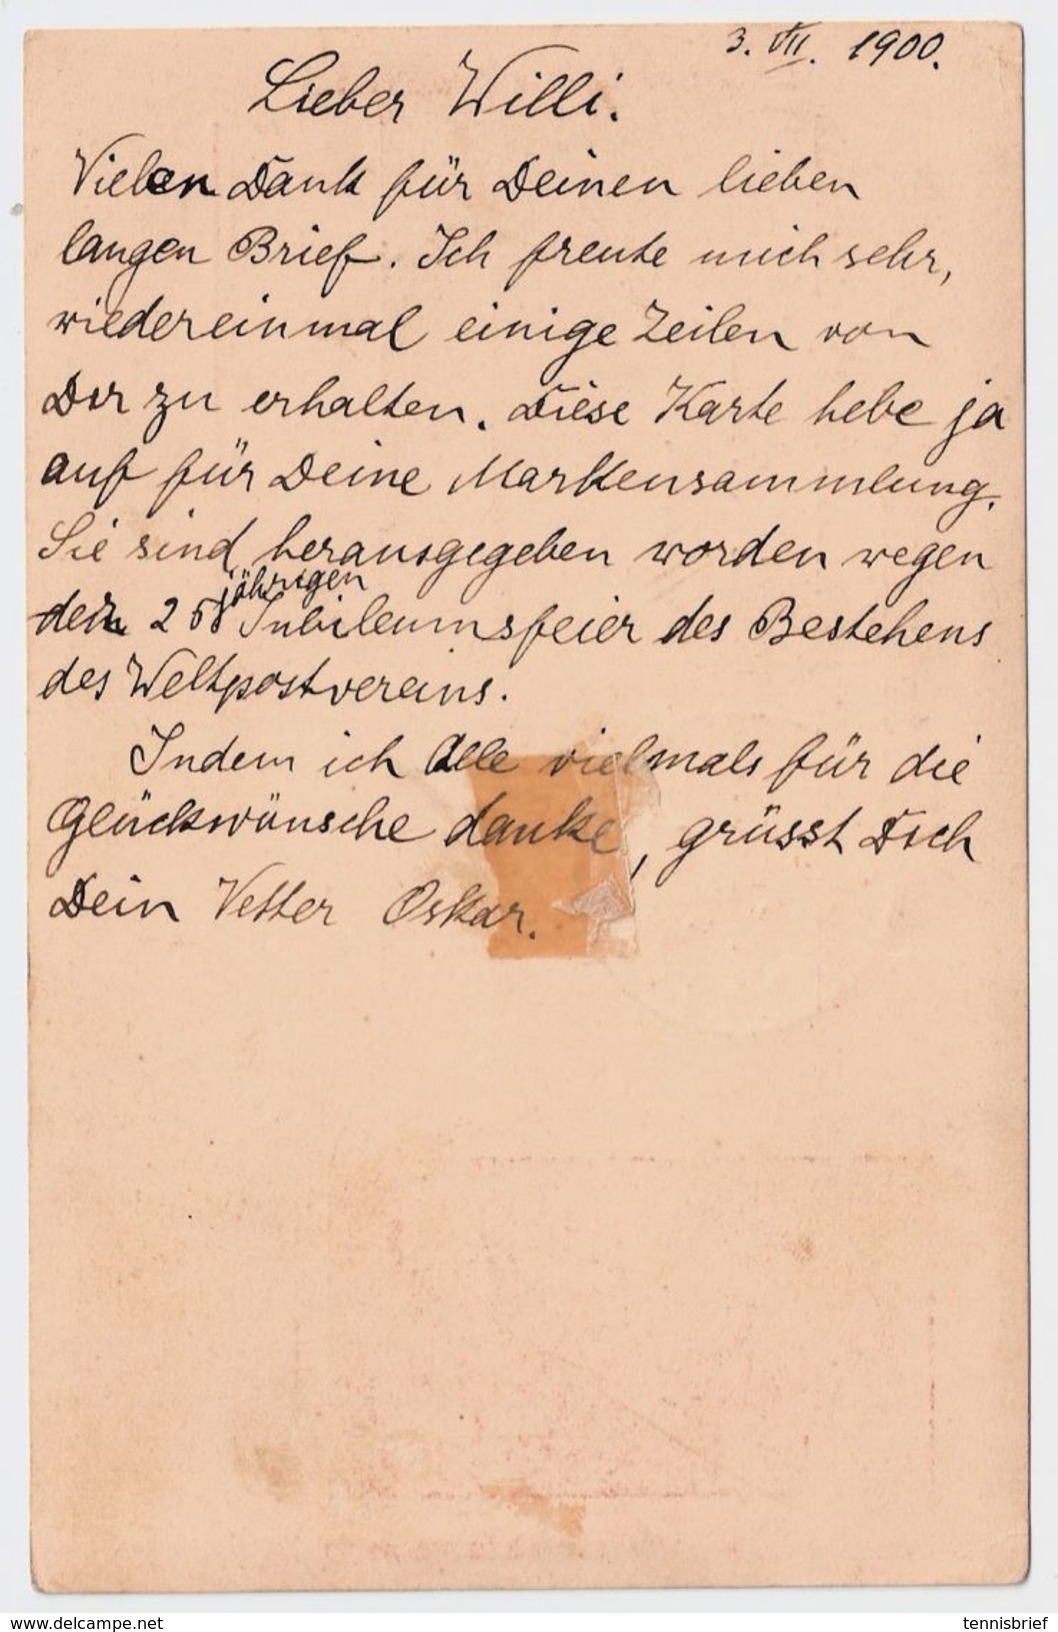 3. VII. 1900.
Lieber Willi.
Vielen Dank für Deinen lieben
langen Brief. Ich freute mich sehr,
wiedereinmal einige Zeilen von
Dir zu erhalten. Diese Karte hebe ja
auf für Deine Markensammlung.
Sie sind herausgegeben worden wegen
jährigen
der 25 Jubileumsfeier des Bestehens
des Weltpostvereins.
Indem ich Alle vielmals für die
Glückwünsche danke, grüsst Dich
Dein Vetter Oskar.
delcampe.net
tennisbrief